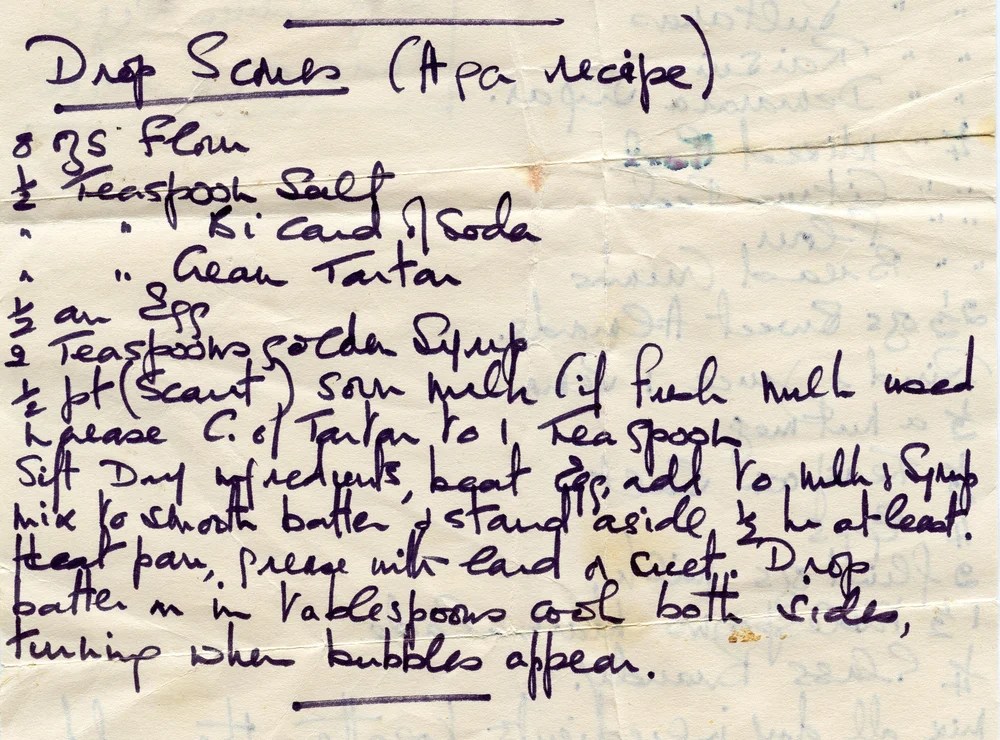 Drop Scones (Aga recipe)
8 ozs Flour
½ Teaspoon Salt
" " Bi Card of Soda
" " Cream Tartar
½ an Egg
2 Teaspoons golden Syrup
½ pt (scant) sour milk (if fresh milk used
increase C. of Tartar to 1 Teaspoon
Sift Dry ingredients, beat egg, add to milk & Syrup
mix to smooth batter & stand aside ½ hr at least.
Heat pan, grease with lard or suet. Drop
batter in in tablespoons cook both sides,
turning when bubbles appear.